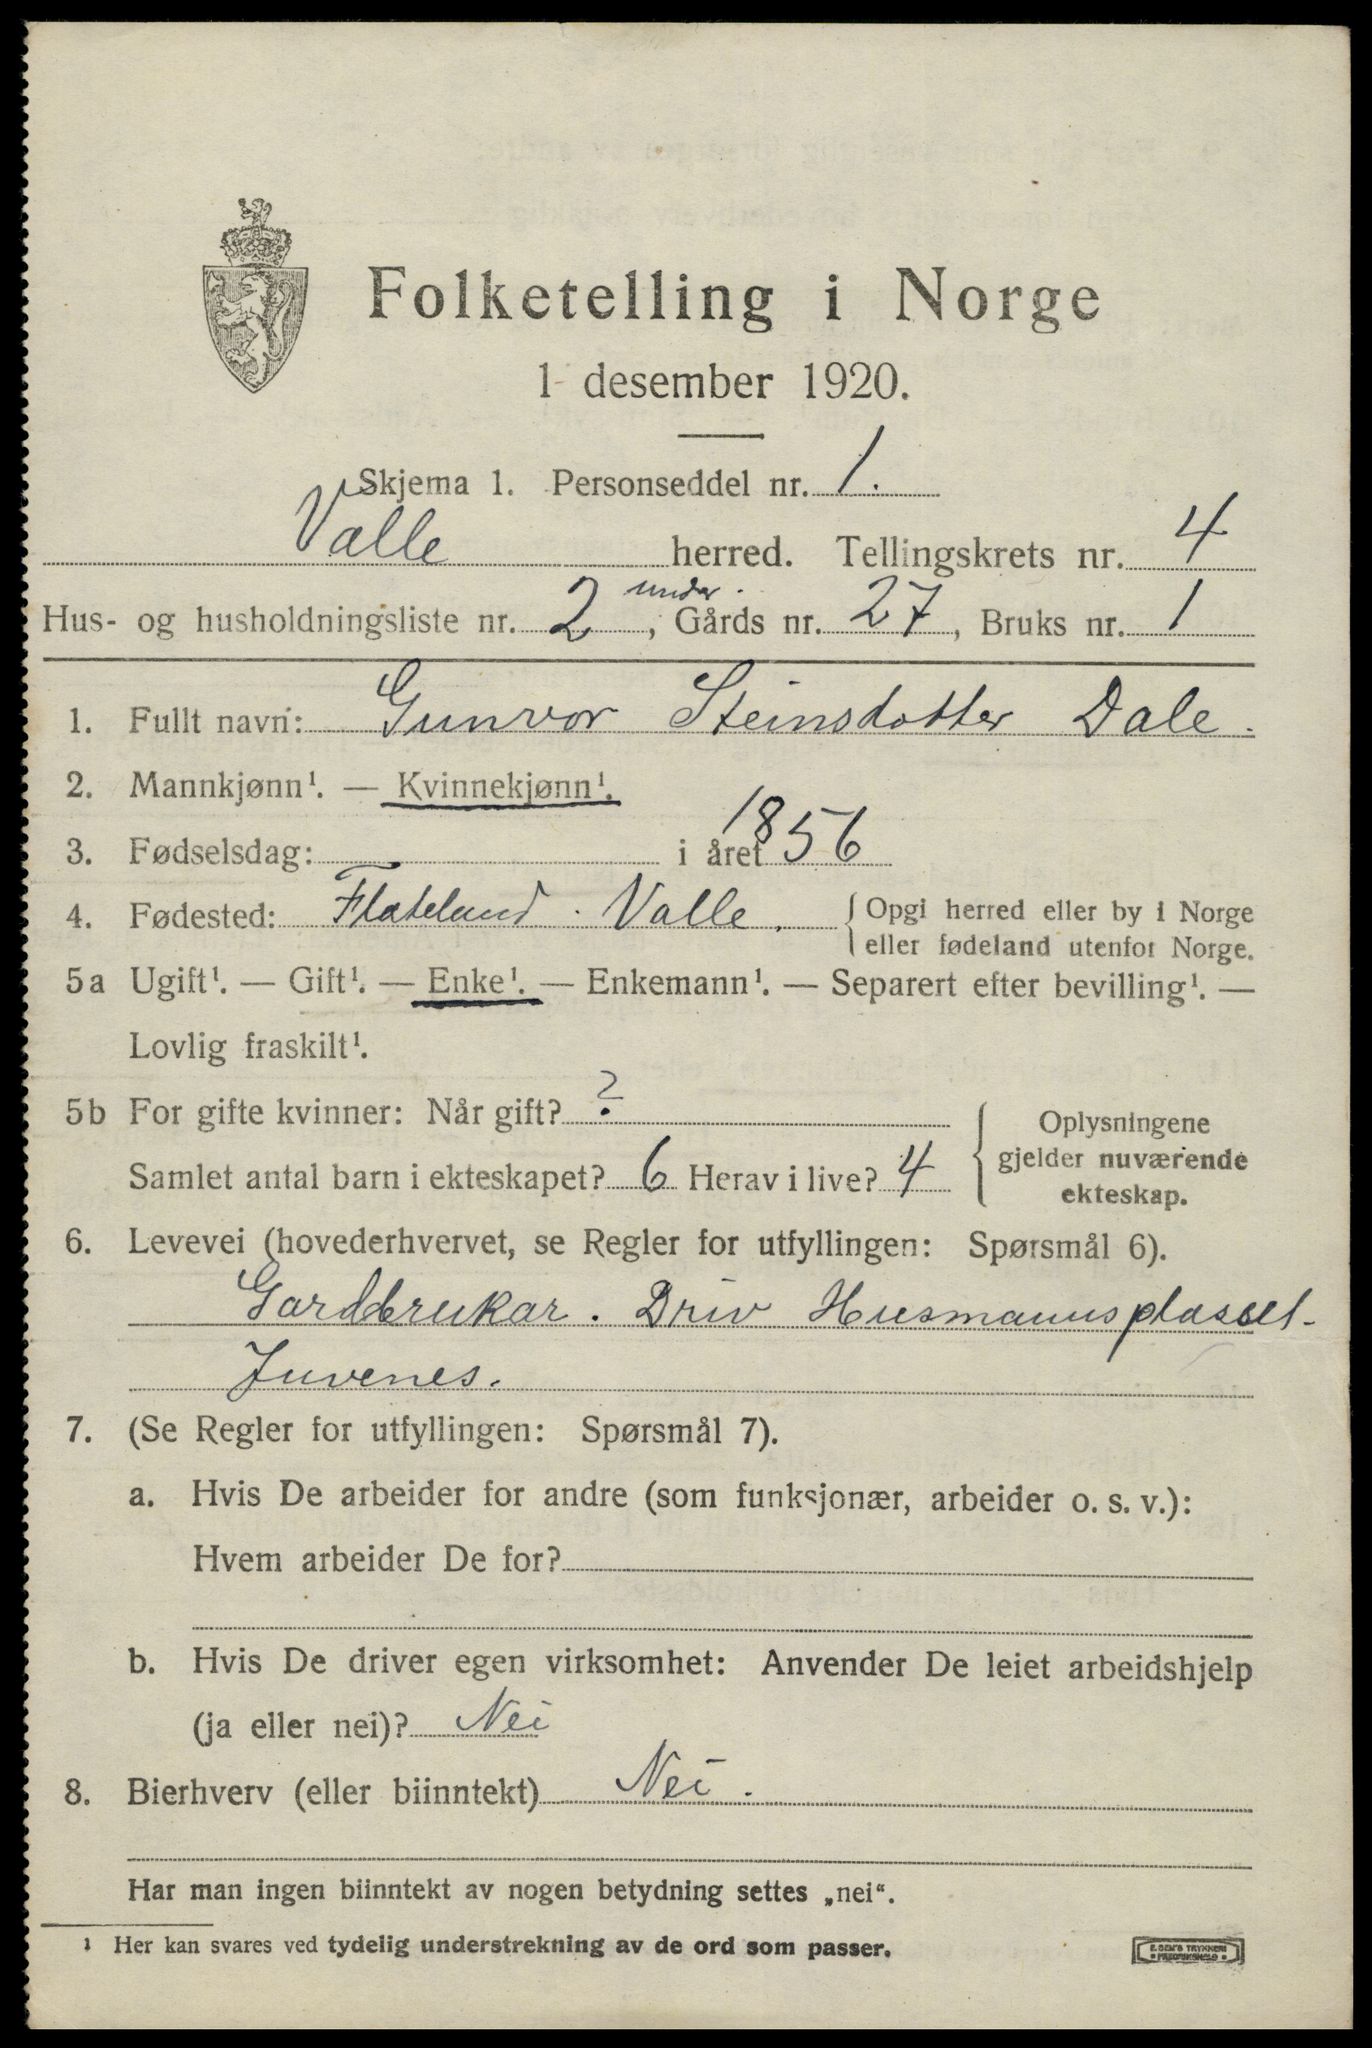 Folketelling i Norge
1 desember 1920.
Skjema 1. Personseddel nr. 1.
Valle herred. Tellingskrets nr. 4
under
Hus- og husholdningsliste nr. 2, Gårds nr. 27, Bruks nr. 1
1. Fullt navn: Gunvor Steinsdotter Dale.
2. Mannkjønn¹. — Kvinnekjønn¹.
3. Fødselsdag: i året 1856
4. Fødested: Flateland. Valle. { Opgi herred eller by i Norge
eller fødeland utenfor Norge.
5a Ugift¹. — Gift¹. — Enke¹. — Enkemann¹. — Separert efter bevilling¹. —
Lovlig fraskilt¹.
5b For gifte kvinner: Når gift? ?
Samlet antal barn i ekteskapet? 6 Herav i live? 4
{ Oplysningene
gjelder nuværende
ekteskap.
6. Levevei (hovederhvervet, se Regler for utfyllingen: Spørsmål 6).
Gardbrukar. Driv Husmannsplasset
Juvenes.
7. (Se Regler for utfyllingen: Spørsmål 7).
a. Hvis De arbeider for andre (som funksjonær, arbeider o. s. v.):
Hvem arbeider De for?
b. Hvis De driver egen virksomhet: Anvender De leiet arbeidshjelp
(ja eller nei)? Nei
8. Bierhverv (eller biinntekt) Nei.
Har man ingen biinntekt av nogen betydning settes „nei“.
¹ Her kan svares ved tydelig understrekning av de ord som passer.